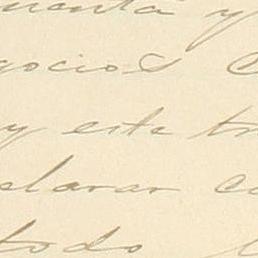 uenta y
gocios C
y este tr
clarar co
todo l